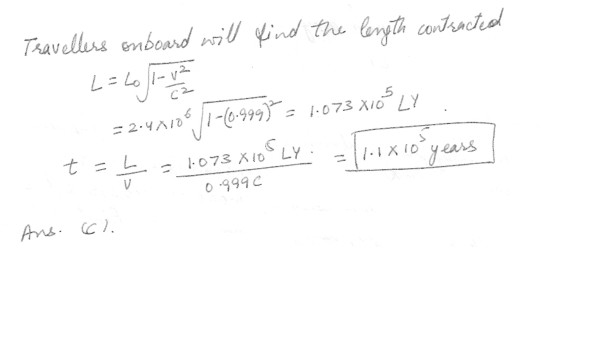 Travellers onboard will find the length contracted
L = L₀ √(1 - v²/c²)
= 2.4 × 10⁶ √(1-(0.999)²) = 1.073 × 10⁵ LY .
t = L/v = 1.073 × 10⁵ LY . / 0.999C = 1.1 × 10⁵ years
Ans. (C).